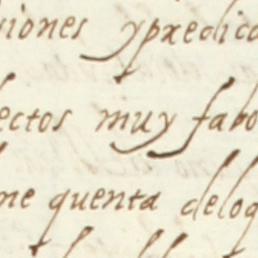 siones ypredica
ectos muy fabo
me quenta deloq